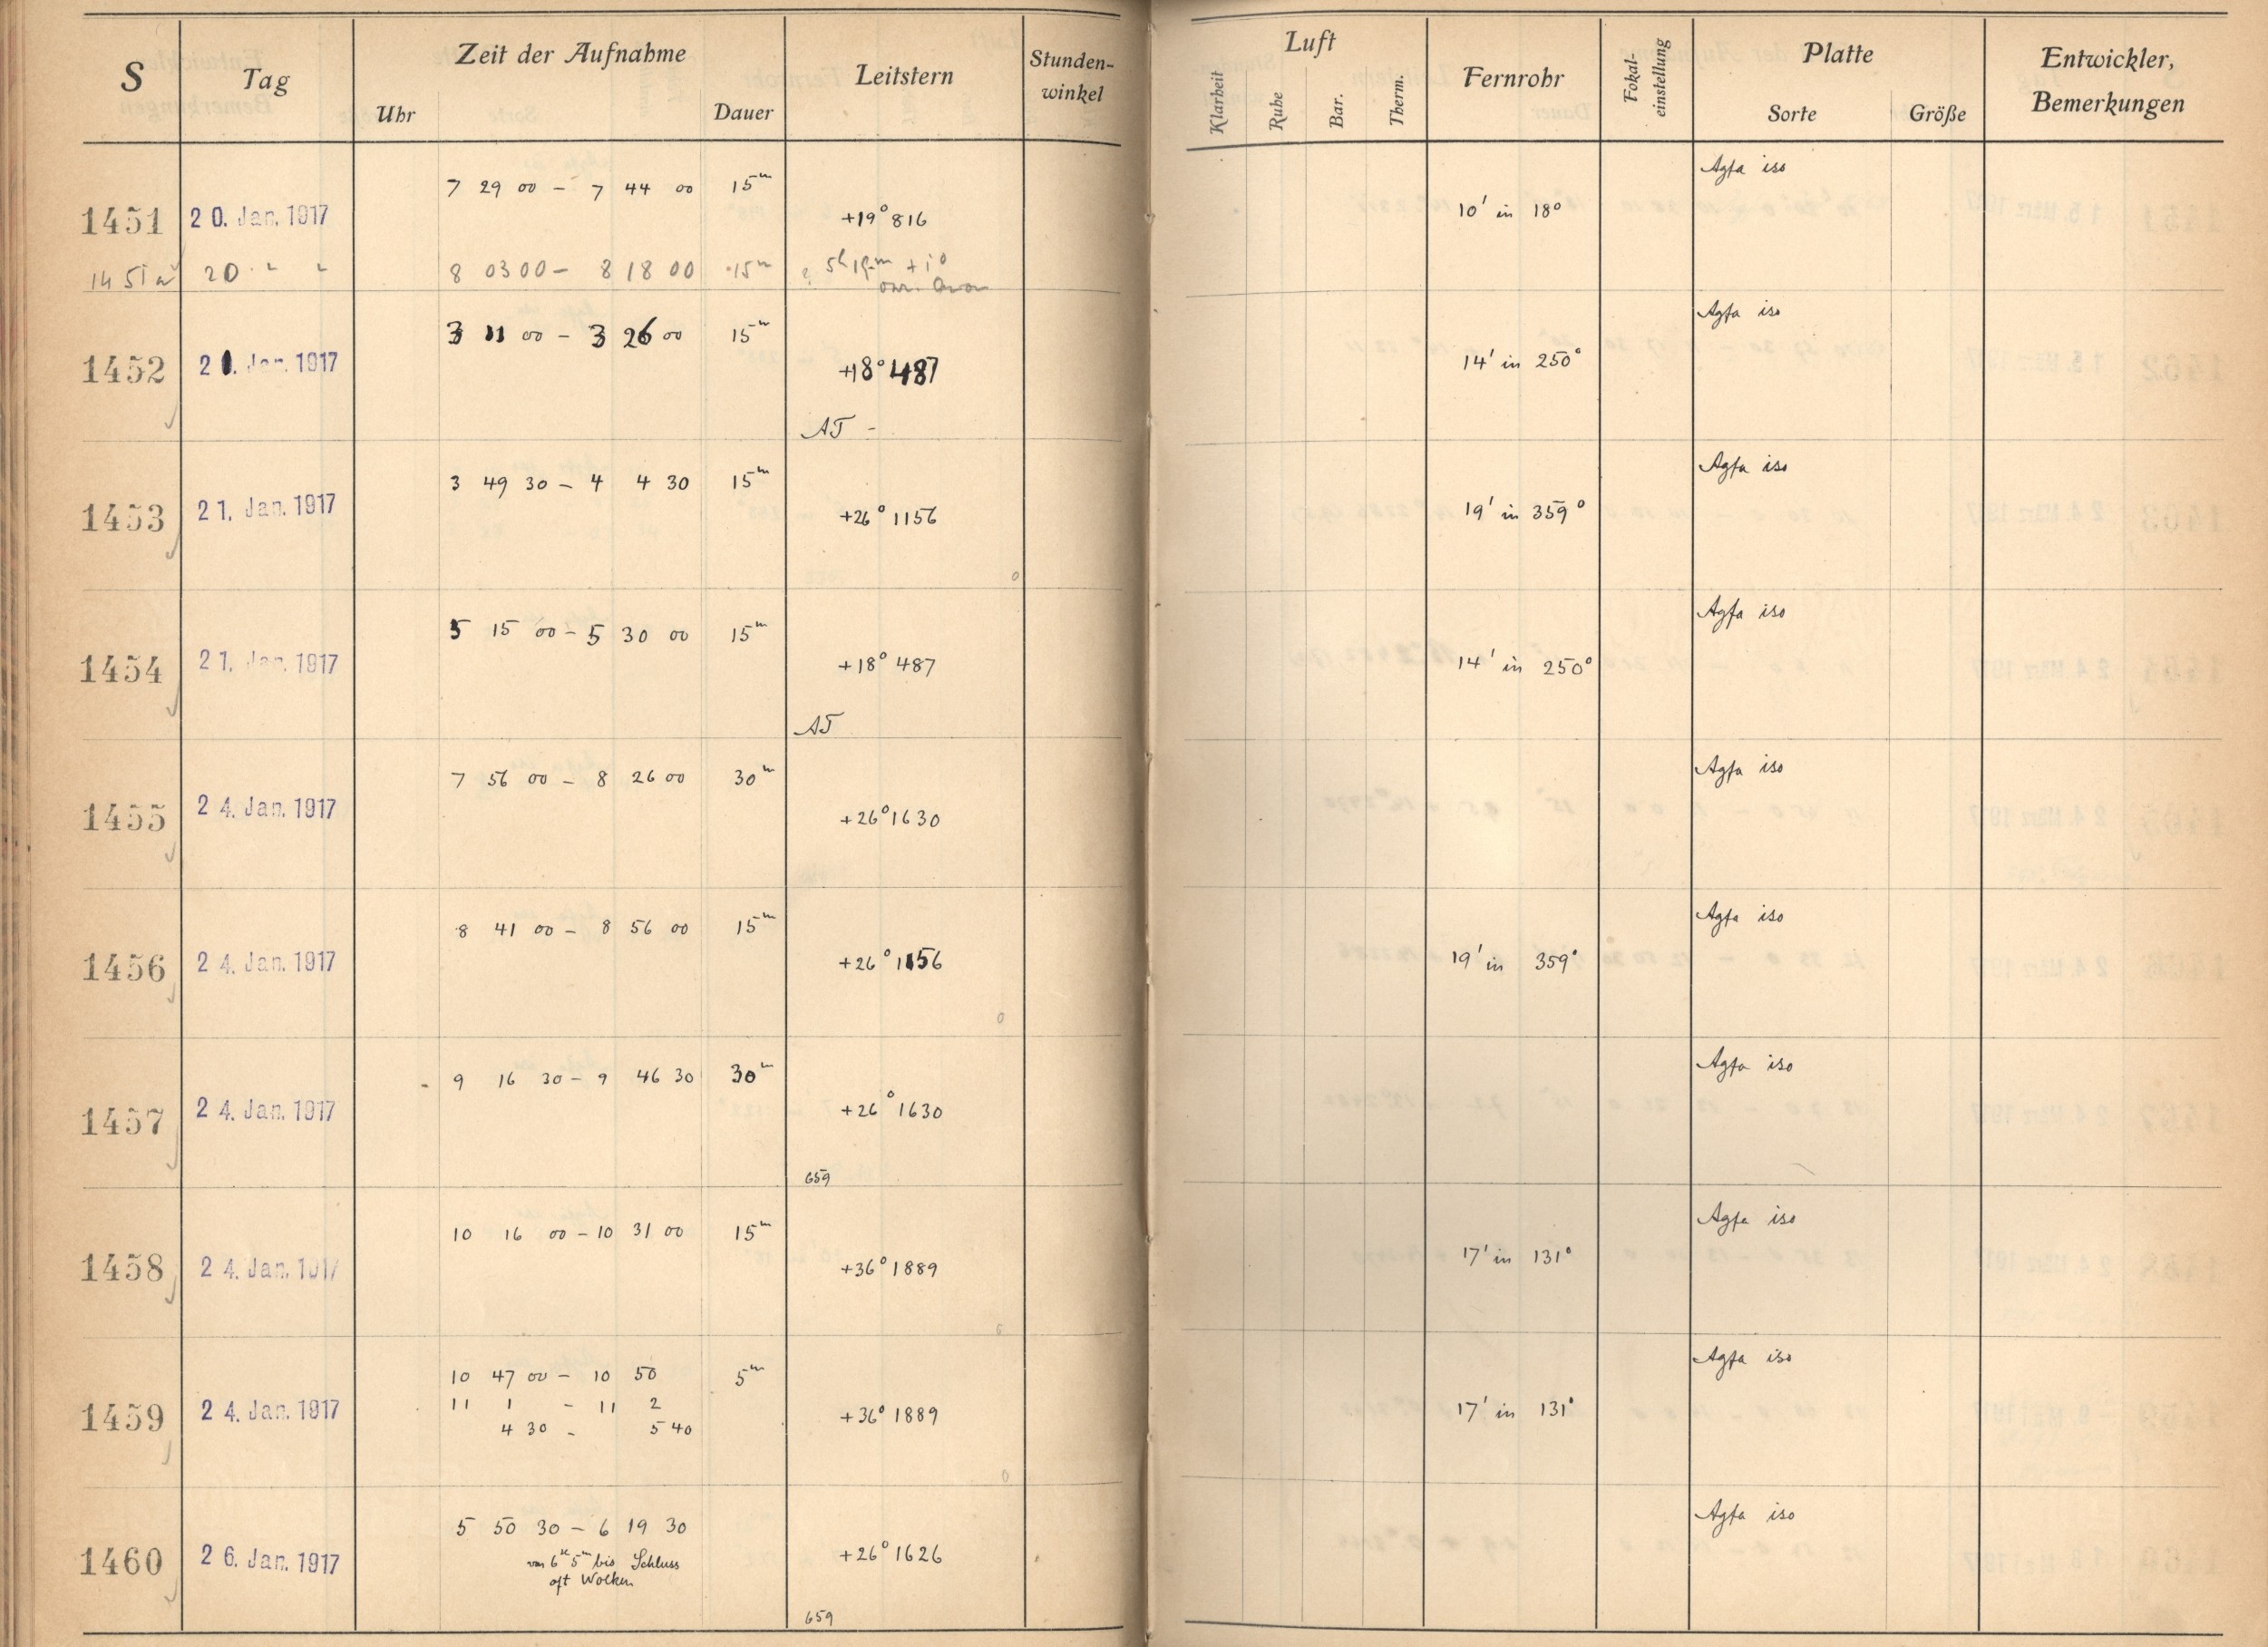 S Tag Zeit der Aufnahme Leitstern Stunden-winkel Luft Fernrohr Fokal-einstellung Platte Entwickler, Bemerkungen
Uhr Dauer Klarheit Ruhe Bar. Therm. Sorte Größe
7 29 00 – 7 44 00 15m Agfa iso
1451 20. Jan. 1917 +19° 816 10' in 18°
1451a 20 " " 8 03 00 – 8 18 00 15m ? 5h 19m +1°
3 11 00 – 3 26 00 15m Agfa iso
1452 21. Jan. 1917 +18° 487 14' in 250°
AT –
3 49 30 – 4 4 30 15m Agfa iso
1453 21. Jan. 1917 +26° 1156 19' in 359°
0
5 15 00 – 5 30 00 15m Agfa iso
1454 21. Jan. 1917 +18° 487 14' in 250°
AT
7 56 00 – 8 26 00 30m Agfa iso
1455 24. Jan. 1917 +26° 1630
8 41 00 – 8 56 00 15m Agfa iso
1456 24. Jan. 1917 +26° 1156 19' in 359°
0
9 16 30 – 9 46 30 30m Agfa iso
1457 24. Jan. 1917 +26° 1630
659
10 16 00 – 10 31 00 15m Agfa iso
1458 24. Jan. 1917 +36° 1889 17' in 131°
0
10 47 00 – 10 50 5m Agfa iso
11 1 – 11 2
1459 24. Jan. 1917 +36° 1889 17' in 131°
4 30 – 5 40
0
5 50 30 – 6 19 30 Agfa iso
1460 26. Jan. 1917 +26° 1626
von 6h 5m bis Schluss
oft Wolken
659